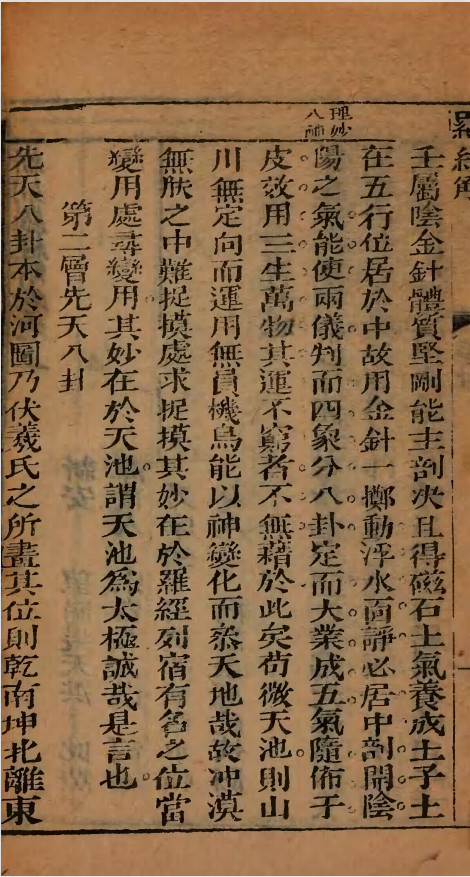 羅經解
壬屬陰金針體質堅剛能主剖决且得磁石土氣養成土子土
在五行位居於中故用金針一擲動浮水面靜必居中剖開陰
理妙
八卦
陽之氣能使兩儀判而四象分八卦定而大業成五氣隨佈于
皮效用三生萬物其運不窮者不無藉於此矣苟微天池則山
川無定向而運用無員機烏能以神變化而叅天地哉故冲漠
無朕之中難捉摸處求捉摸其妙在於羅經列宿有名之位當
變用處尋變用其妙在於天池謂天池為太極誠哉是言也
第二層先天八卦
先天八卦本於河圖乃伏羲氏之所畫其位則乾南坤北離東